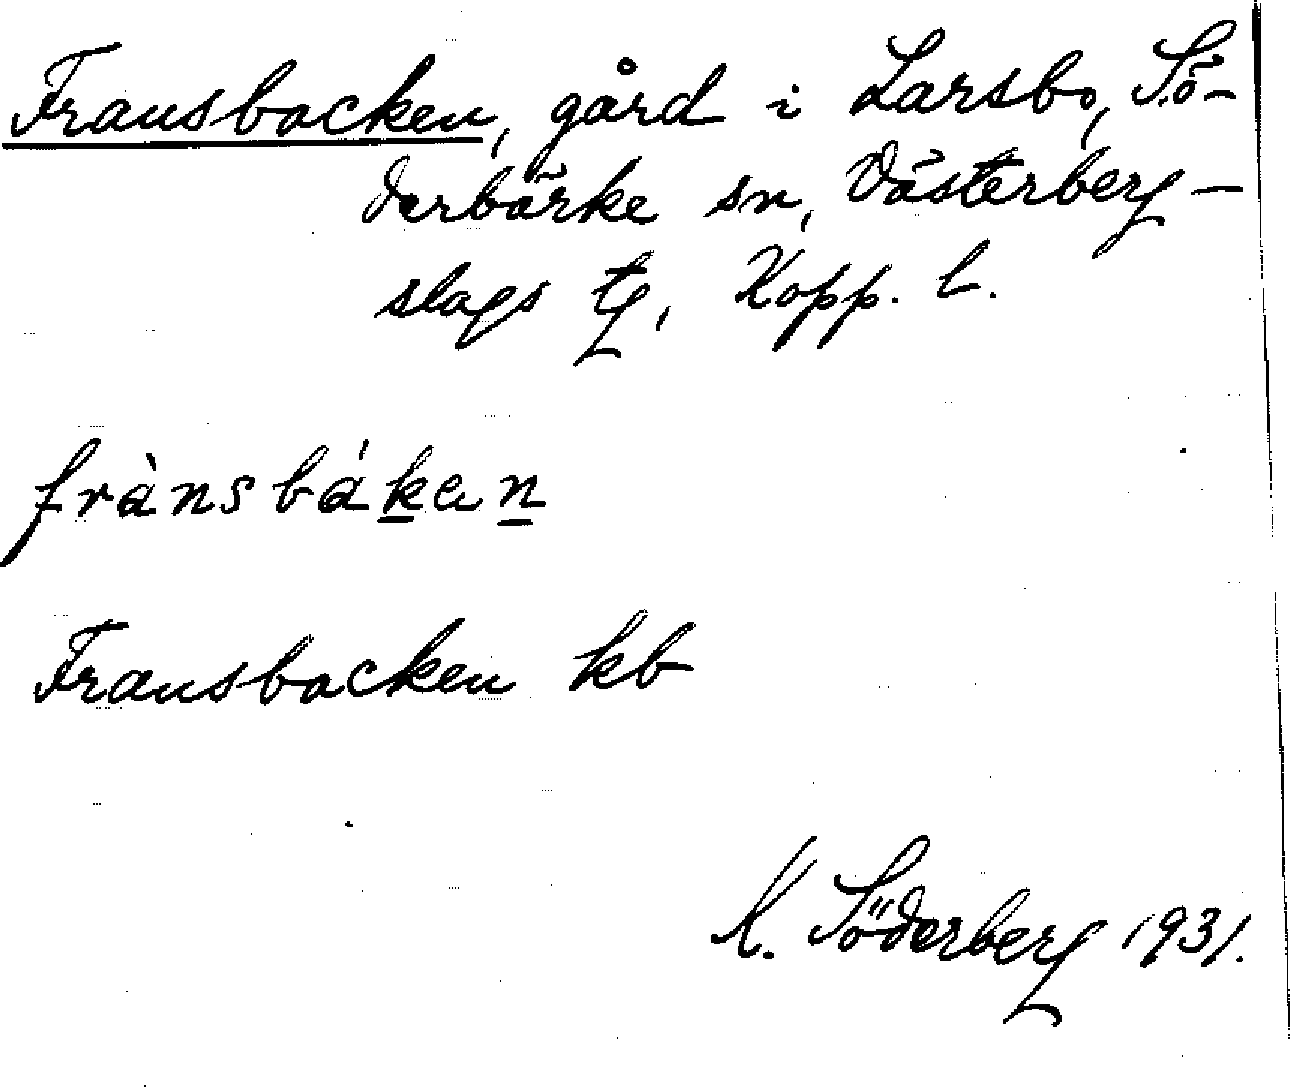 Fransbacken, gård i Larsbo, Sö-
derbärke sn, Västerberg-
slags tg, Kopp. l.
frànsbákan
Fransbacken kb
K. Söderberg 1931.